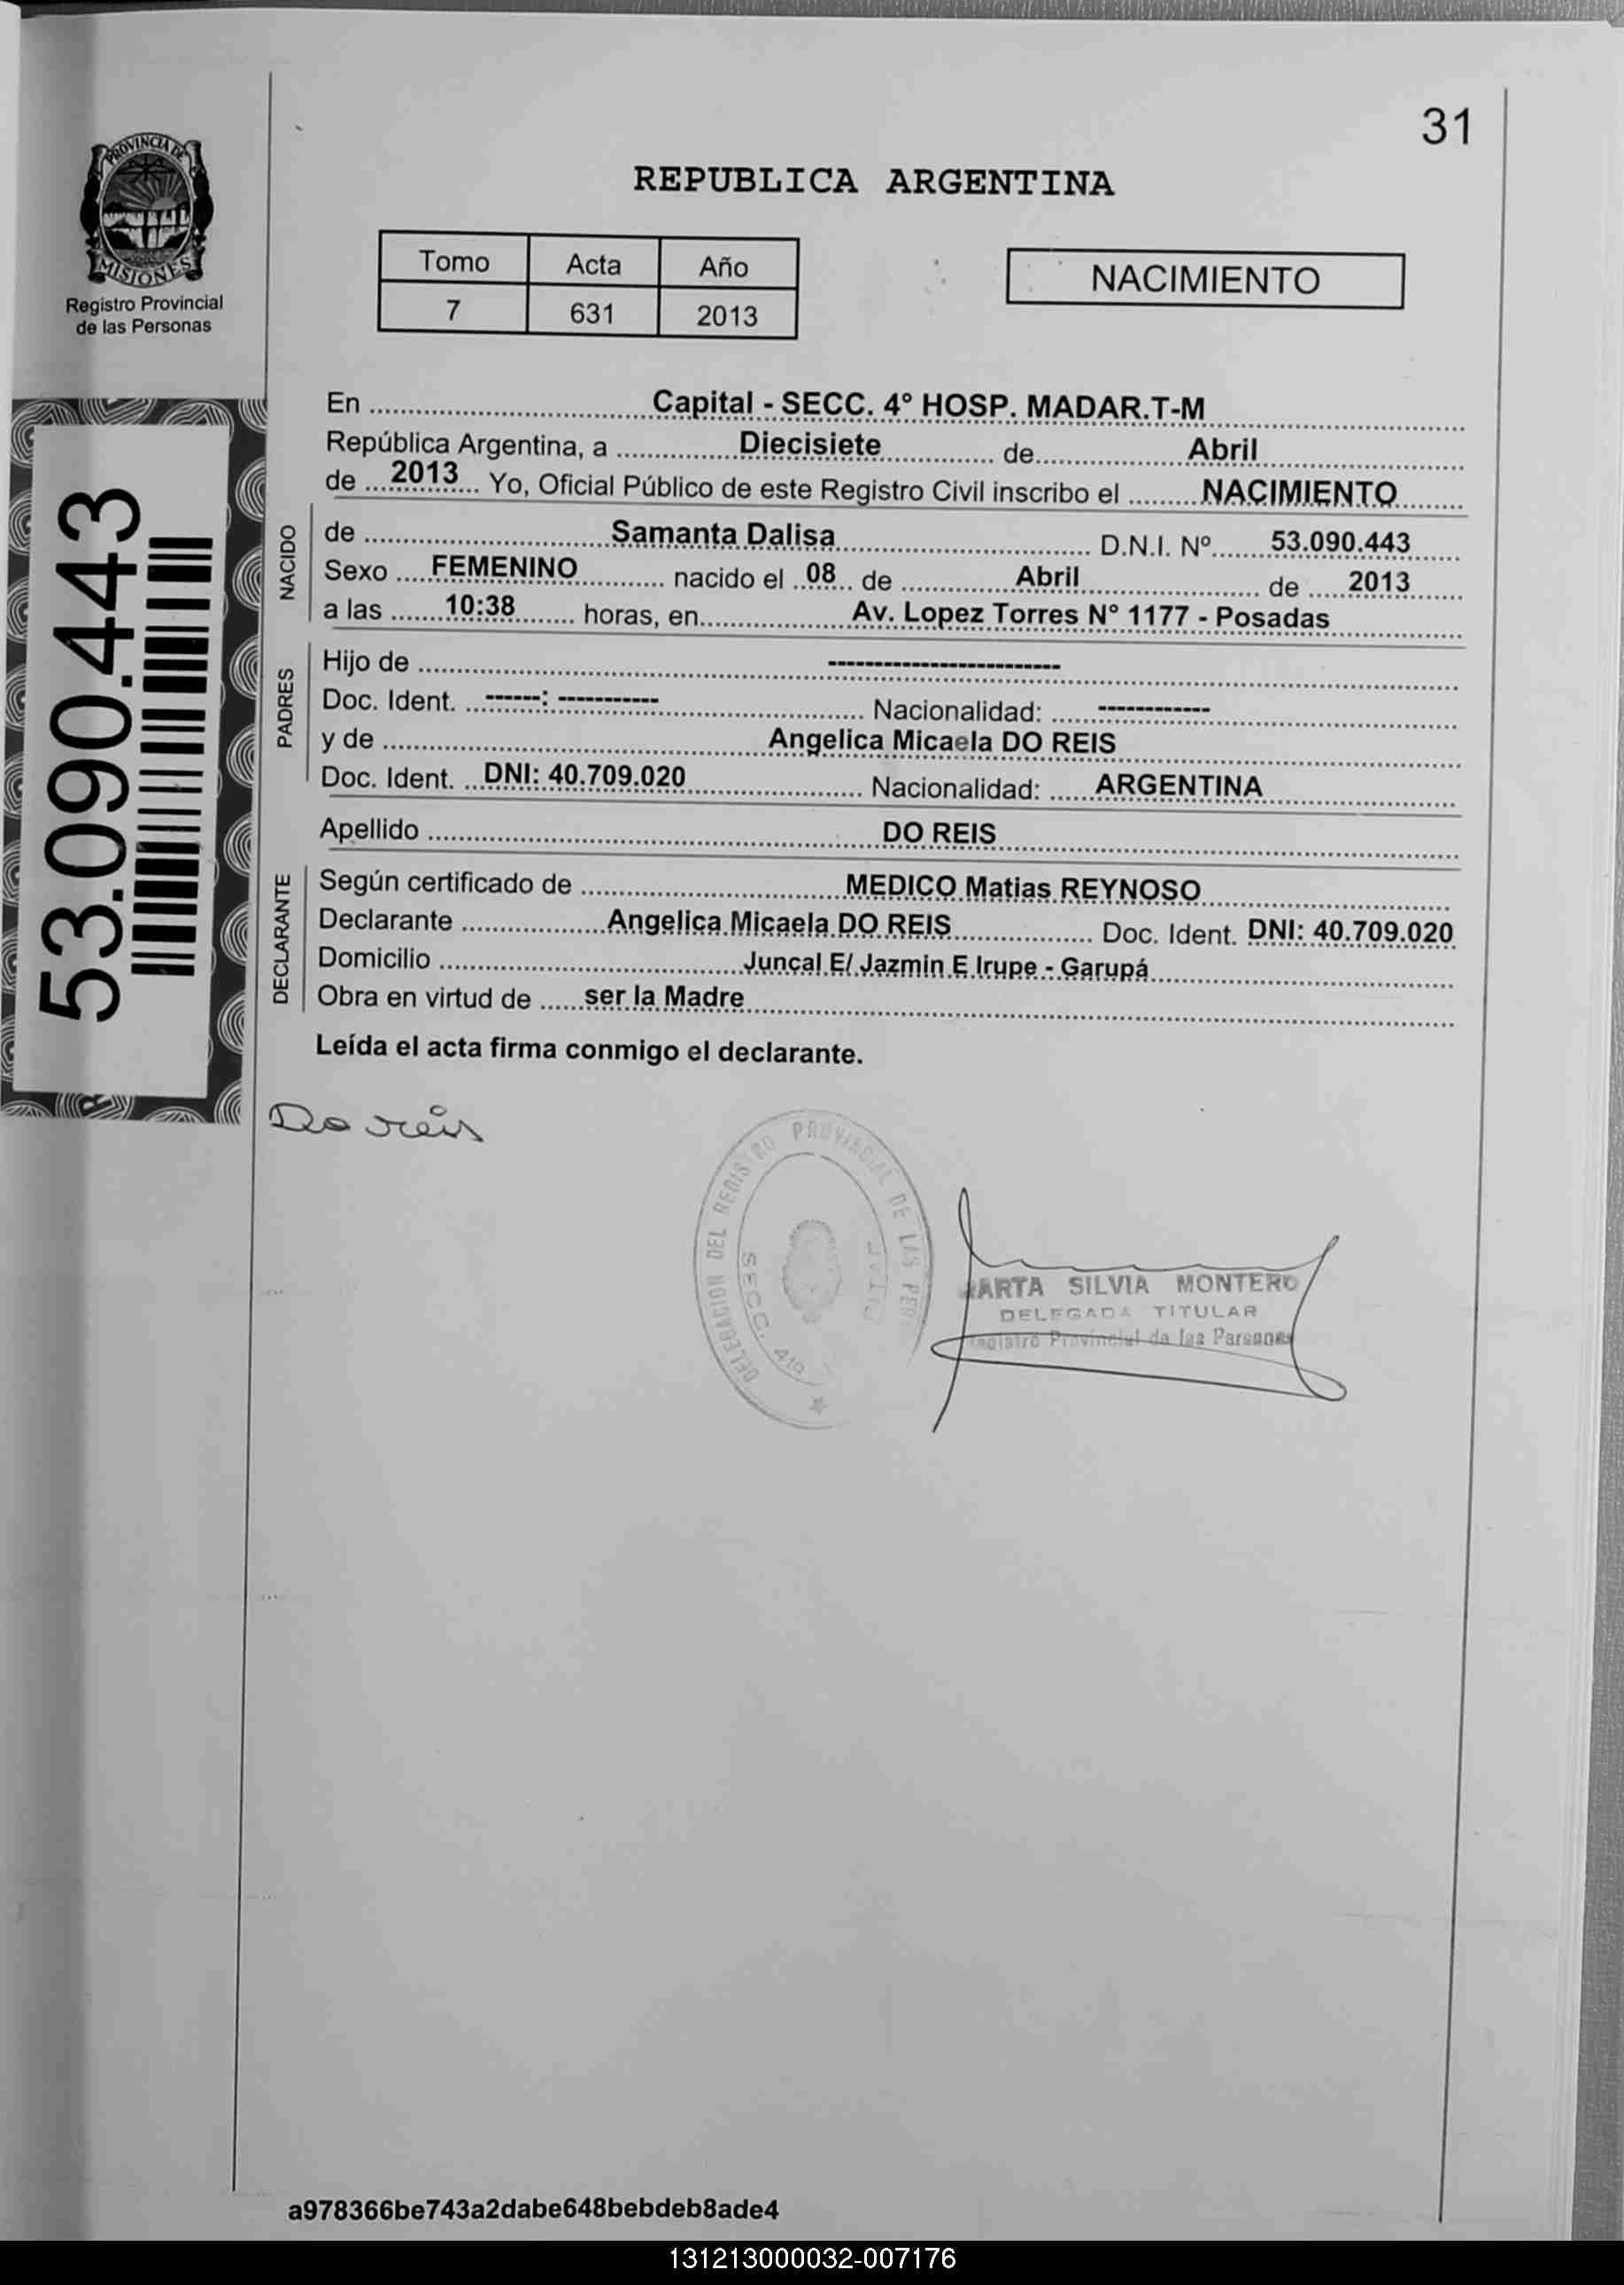 31
PROVINCIA DE
MISIONES
Registro Provincial
de las Personas
REPUBLICA ARGENTINA
Tomo Acta Año
7 631 2013
NACIMIENTO
53.090.443
En Capital - SECC. 4º HOSP. MADAR.T-M
República Argentina, a Diecisiete de Abril
de 2013 Yo, Oficial Público de este Registro Civil inscribo el NACIMIENTO
NACIDO
de Samanta Dalisa D.N.I. Nº 53.090.443
Sexo FEMENINO nacido el 08 de Abril de 2013
a las 10:38 horas, en Av. Lopez Torres N° 1177 - Posadas
PADRES
Hijo de -------------------------
Doc. Ident. ------: ----------- Nacionalidad: ------------
y de Angelica Micaela DO REIS
Doc. Ident. DNI: 40.709.020 Nacionalidad: ARGENTINA
Apellido DO REIS
DECLARANTE
Según certificado de MEDICO Matias REYNOSO
Declarante Angelica Micaela DO REIS Doc. Ident. DNI: 40.709.020
Domicilio Juncal E/ Jazmin E Irupe - Garupá
Obra en virtud de ser la Madre
Leída el acta firma conmigo el declarante.
Do reis
DELEGACION DEL REGISTRO PROVINCIAL DE LAS PER
SECC. 4ta
ARTA SILVIA MONTERO
DELEGADA TITULAR
Registro Provincial de las Personas
a978366be743a2dabe648bebdeb8ade4
131213000032-007176